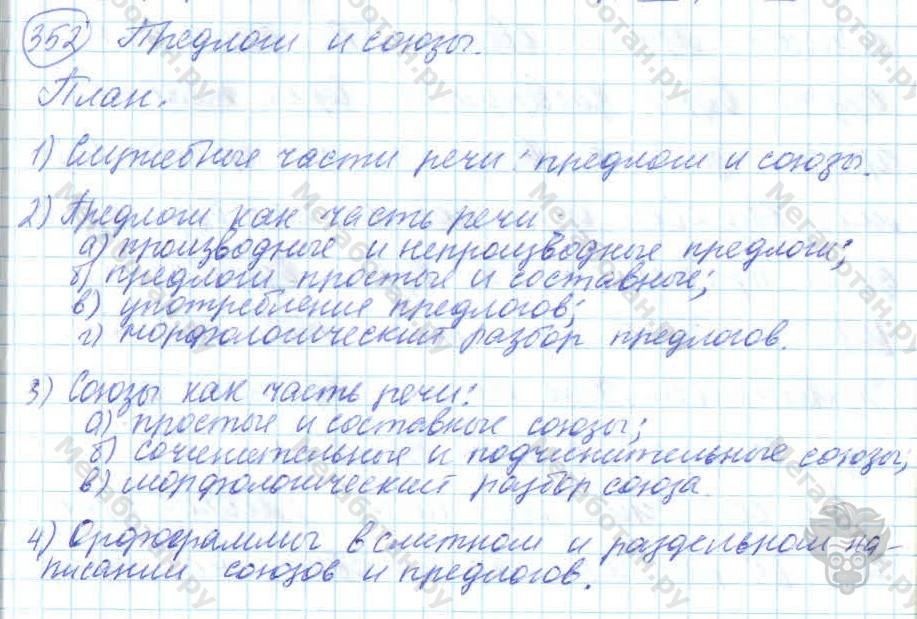 352 Предлоги и союзы.
План.
1) Служебные части речи: предлоги и союзы.
2) Предлоги как часть речи
а) производные и непроизводные предлоги;
б) предлоги простые и составные;
в) употребление предлогов;
г) морфологический разбор предлогов.
3) Союзы как часть речи:
а) простые и составные союзы;
б) сочинительные и подчинительные союзы;
в) морфологический разбор союза.
4) Орфограммы в слитном и раздельном на-
писании союзов и предлогов.
Мегаботан.ру